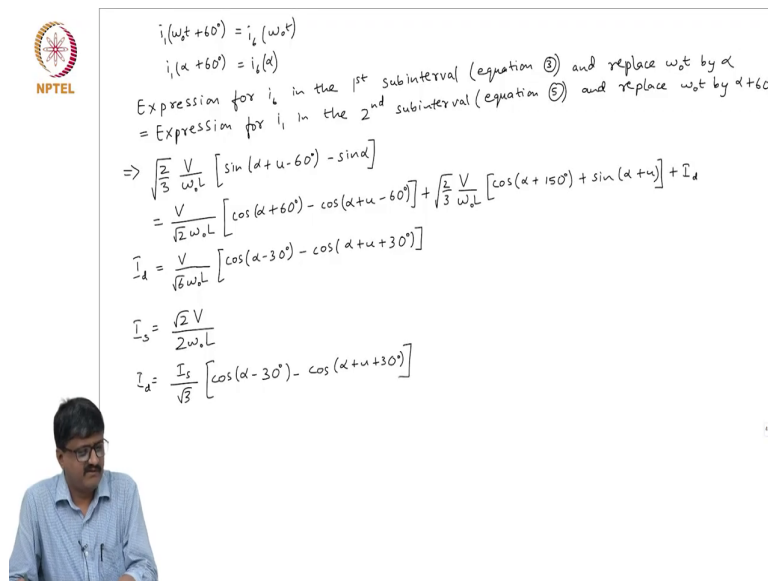 i₁(ω₀t + 60°) = i₆(ω₀t)
i₁(α + 60°) = i₆(α)
NPTEL
Expression for i₆ in the 1st subinterval (equation ③) and replace ω₀t by α
= Expression for i₁ in the 2nd subinterval (equation ⑤) and replace ω₀t by α+60
⇒ √(2/3) V/(ω₀L) [sin(α+u-60°) - sinα]
= V/(√2ω₀L) [cos(α+60°) - cos(α+u-60°)] + √(2/3) V/(ω₀L) [cos(α+150°) + sin(α+u)] + I_d
I_d = V/(√6ω₀L) [cos(α-30°) - cos(α+u+30°)]
I_s = √2V/(2ω₀L)
I_d = I_s/√3 [cos(α-30°) - cos(α+u+30°)]